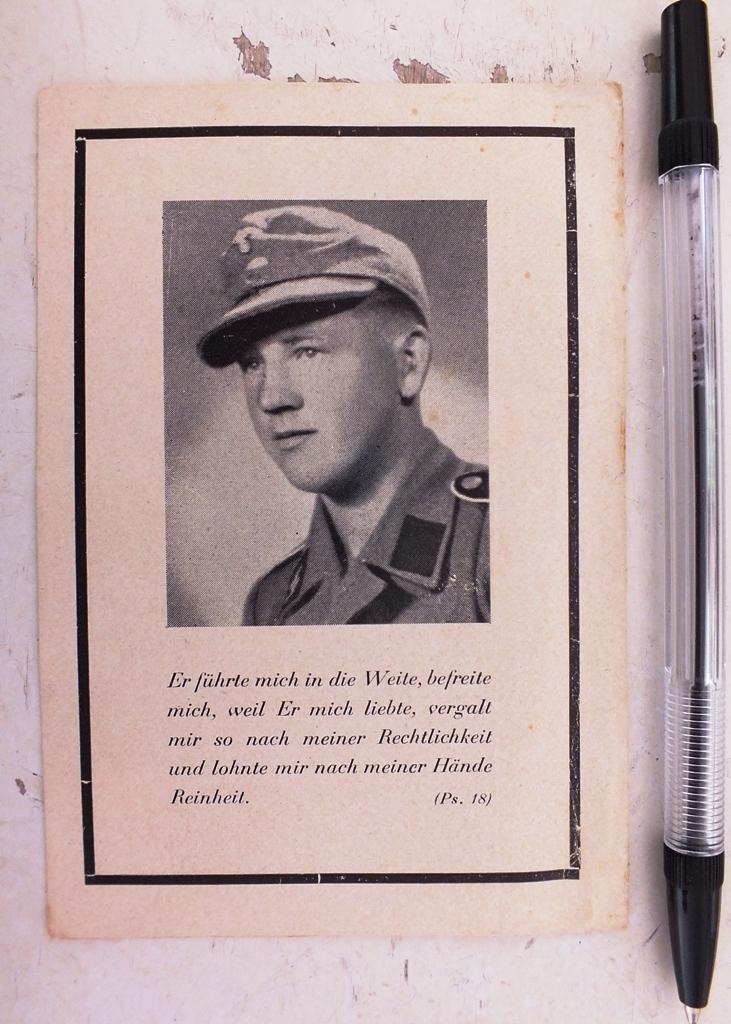 Er führte mich in die Weite, befreite
mich, weil Er mich liebte, vergalt
mir so nach meiner Rechtlichkeit
und lohnte mir nach meiner Hände
Reinheit. (Ps. 18)